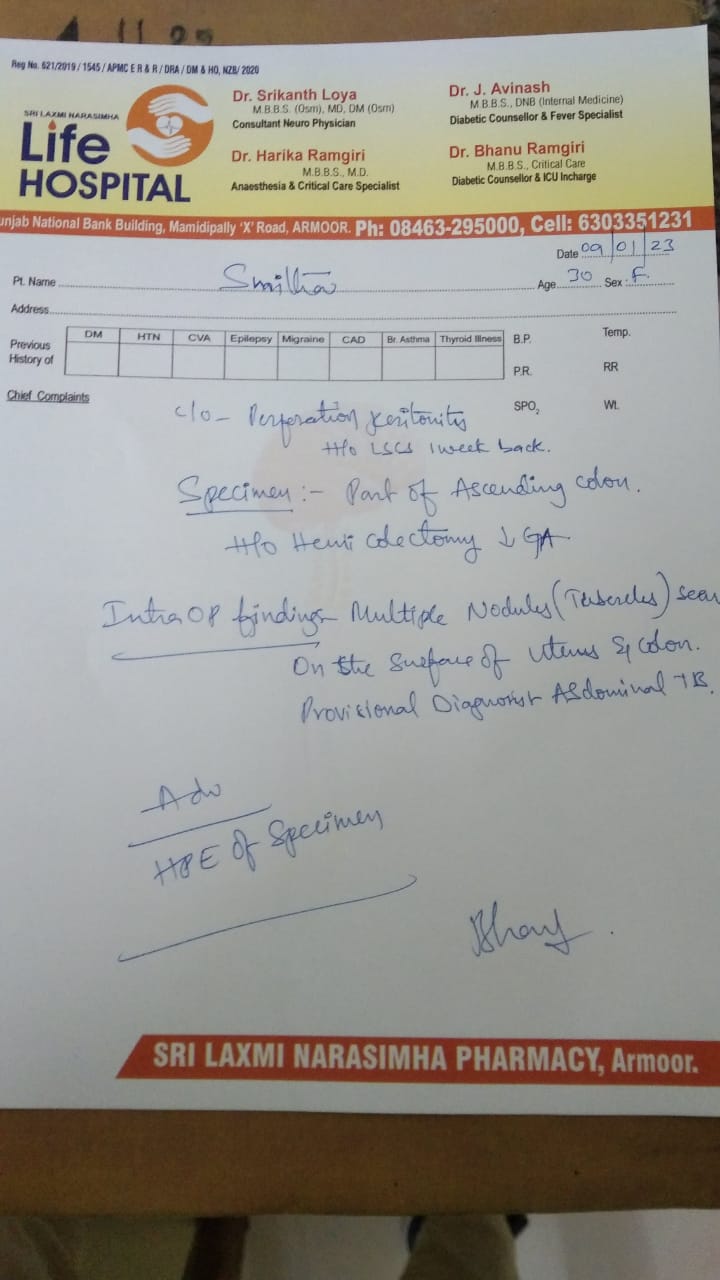 Reg No. 621/2019 / 1545 / APMC E R & R / DRA / DM & HO, NZB/ 2020
SRI LAXMI NARASIMHA
Life
HOSPITAL
Dr. Srikanth Loya
M.B.B.S. (Osm), MD, DM (Osm)
Consultant Neuro Physician
Dr. Harika Ramgiri
M.B.B.S., M.D.
Anaesthesia & Critical Care Specialist
Dr. J. Avinash
M.B.B.S., DNB (Internal Medicine)
Diabetic Counsellor & Fever Specialist
Dr. Bhanu Ramgiri
M.B.B.S., Critical Care
Diabetic Counsellor & ICU Incharge
unjab National Bank Building, Mamidipally 'X' Road, ARMOOR. Ph: 08463-295000, Cell: 6303351231
Date 09/01/23
Pt. Name Age 30 Sex : F
Address
Previous History of DM HTN CVA Epilepsy Migraine CAD Br. Asthma Thyroid Illness B.P. Temp.
P.R. RR
Chief Complaints SPO2 Wt.
c/o - Perforation Peritonitis
H/o LSCS 1 week back.
Specimen :- Part of Ascending colon.
H/o Hemi colectomy ↓ GA
Intra OP findings Multiple Nodules (Tubercles) seen
On the surface of Uterus & colon.
Provisional Diagnosis Abdominal TB.
Adv
HPE of Specimen
SRI LAXMI NARASIMHA PHARMACY, Armoor.